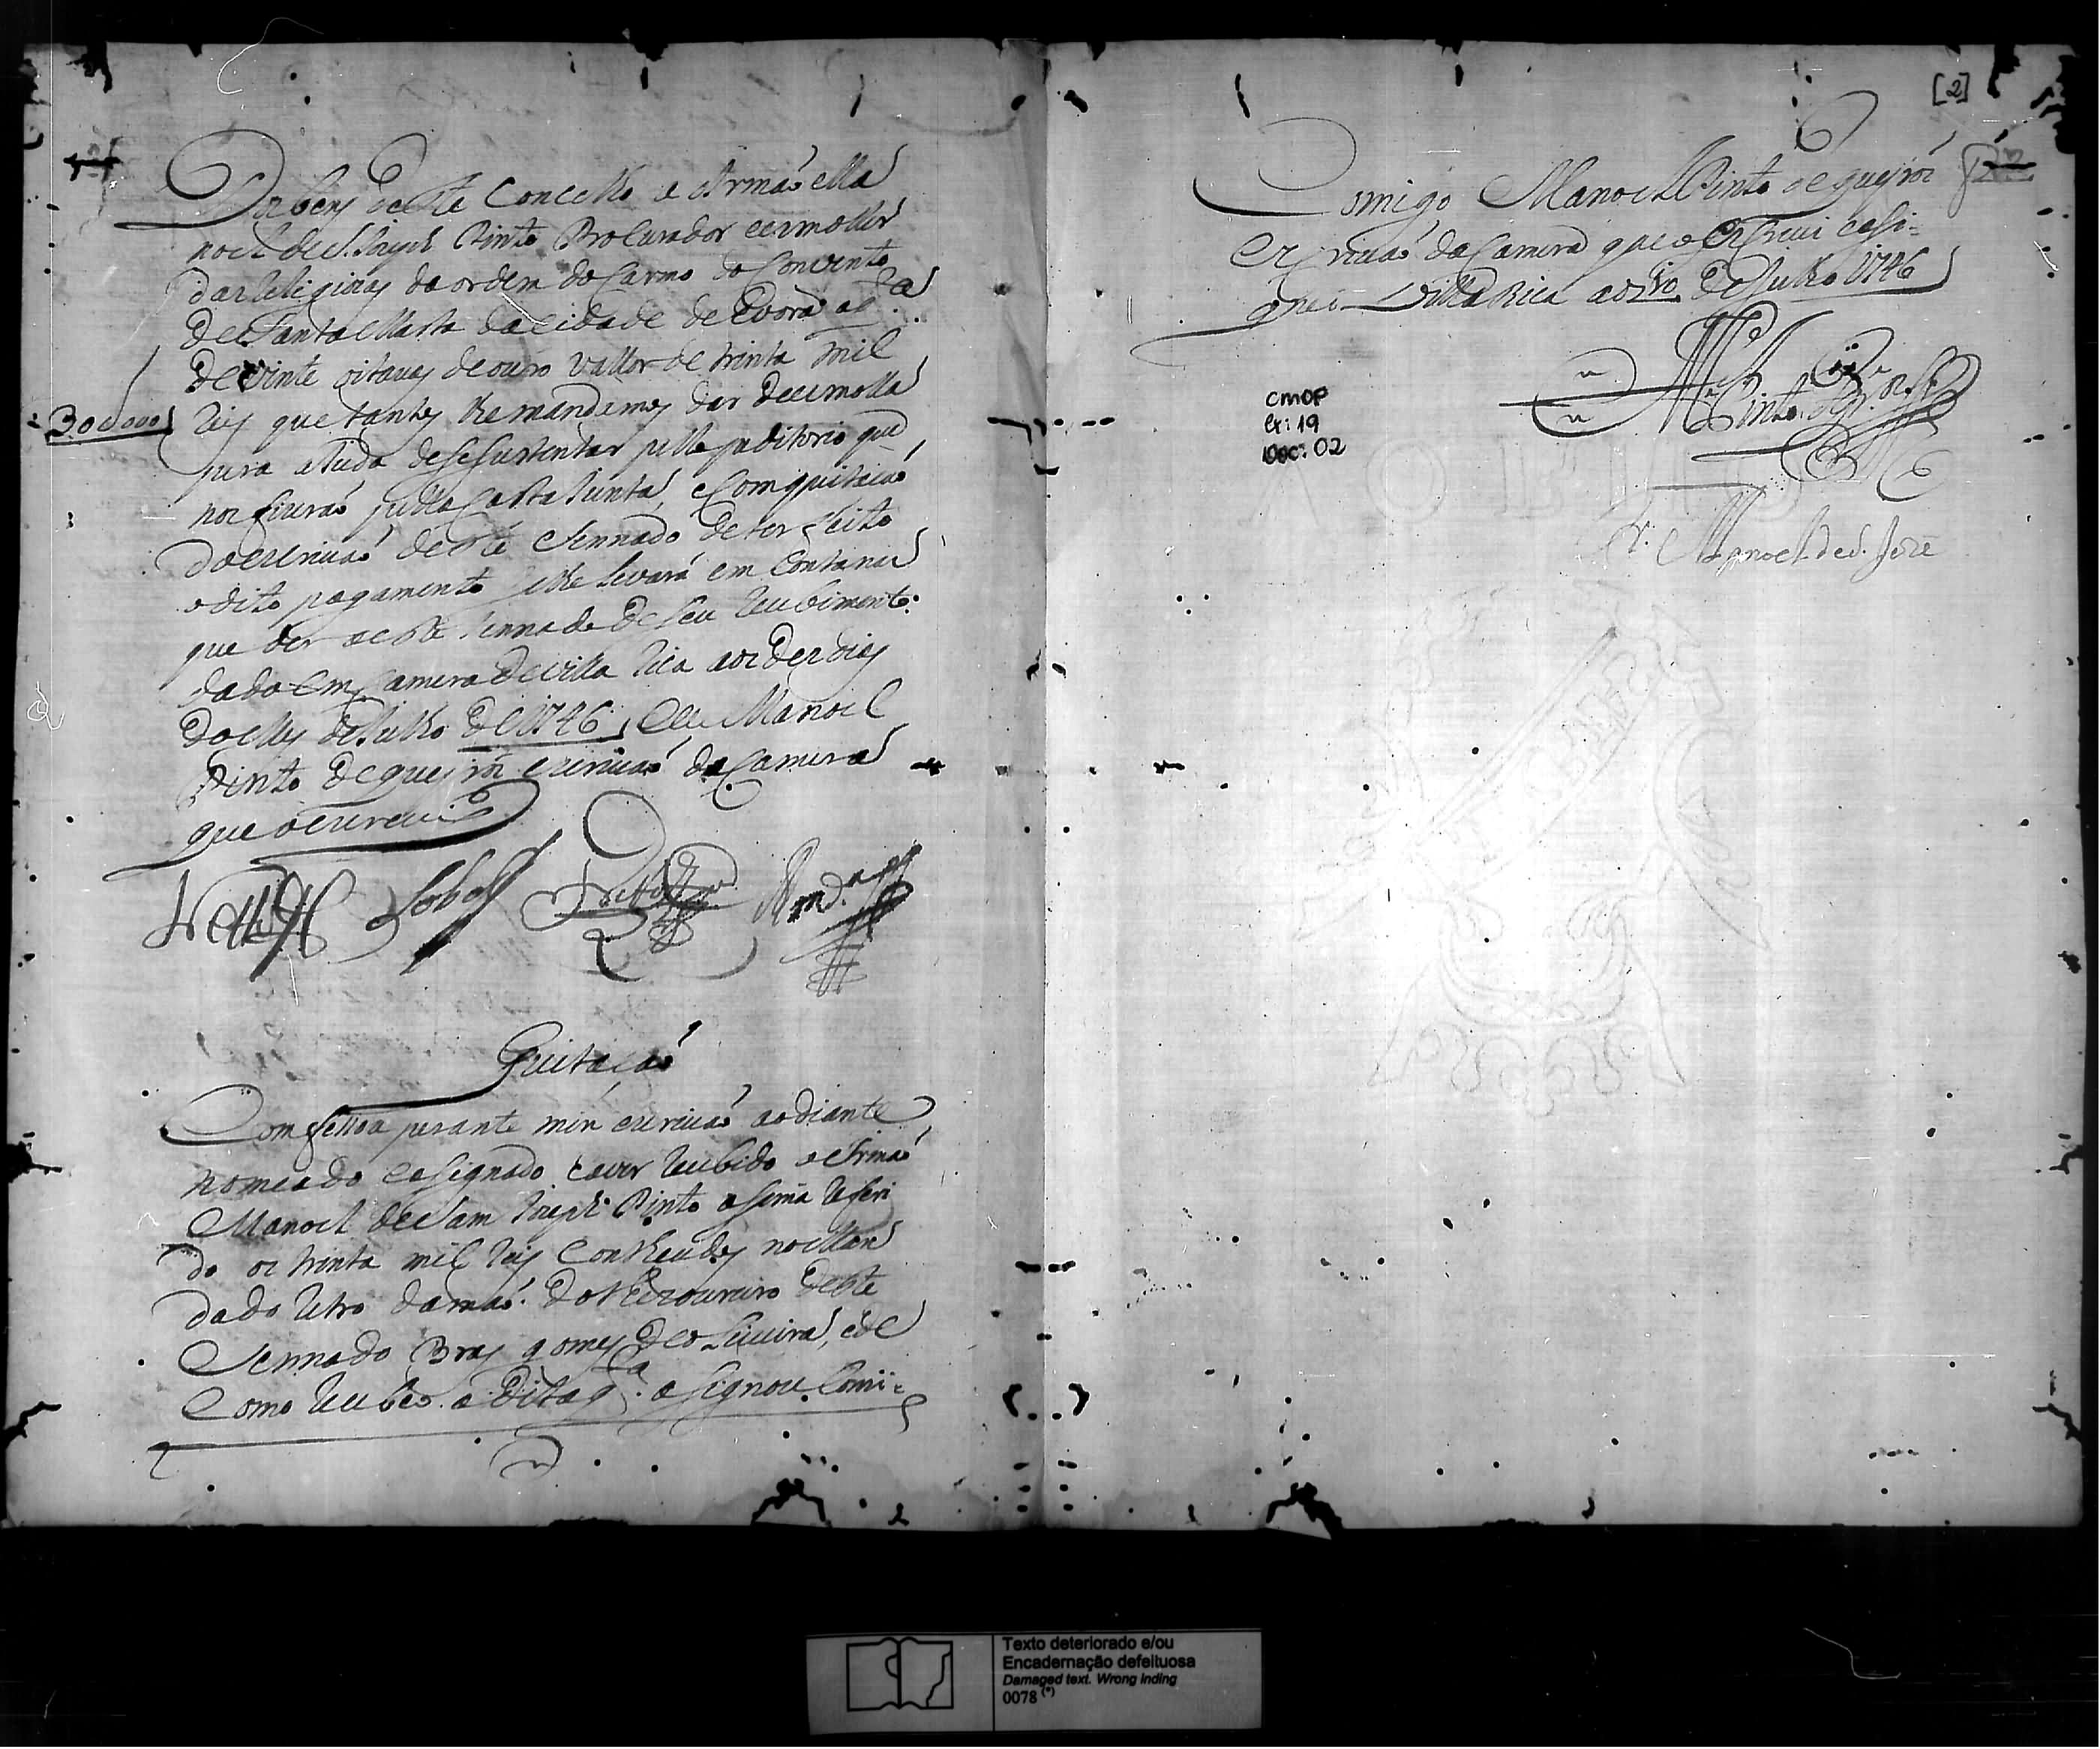 Dos bens deste Concelho a Irmaõ Ma
noel de S. Joseph Pinto Procurador eesmoller
das Religiozas da ordem do Carmo do Convento
de Santa da cidade de Evora a q.ta
de vinte oitavas de ouro vallor de trinta mil
30$000 reis que tantos lhe mandamos dar de esmolla
para ajuda de se sustentar pella petitorio que
nos fizeraõ pella Carta junta, e Com quitacaõ
do escrivaõ deste Sennado de ter feito
o dito pagamento se lhe levará em Conta na
que der a este Sennado de seu recebimento:
dado em Camera de Villa Rica aos dez dias
do Mes de Julho de 1746, e eu Manoel
Pinto de queyrós escrivaõ da Camera
que o escrevi
Netto Lobo
Quitacaõ
Comfessou perante mim escrivaõ ao diante
nomeado e asignado aver recebido o Irmaõ
Manoel de Sam Joseph Pinto asima referi
do os trinta mil reis Contheudos no Man
dado retro da maõ do Thezoureiro deste
Sennado Bras gomes de oliveira, e de
Como recebeo a dita q.ta asignou Comi=
[2]
Comigo Manoel Pinto de queyrós
Escrivaõ da Camera que o Escrevi e asi=
gnei Villa Rica aos 10 de Julho 1746
M.el Pinto
Fr. Manoel de S. Joze
CMOP
Cx: 19
Doc: 02
Texto deteriorado e/ou
Encadernação defeituosa
Damaged text. Wrong inding
0078 (*)